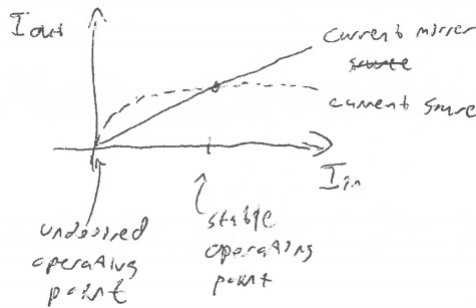 Iout
current mirror
source
current source
Iin
undesired
operating
point
stable
operating
point